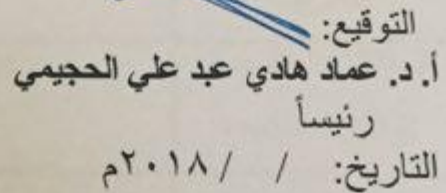 التوقيع:
أ. د. عماد هادي عبد علي الحجيمي
رئيساً
التاريخ: / / ٢٠١٨م